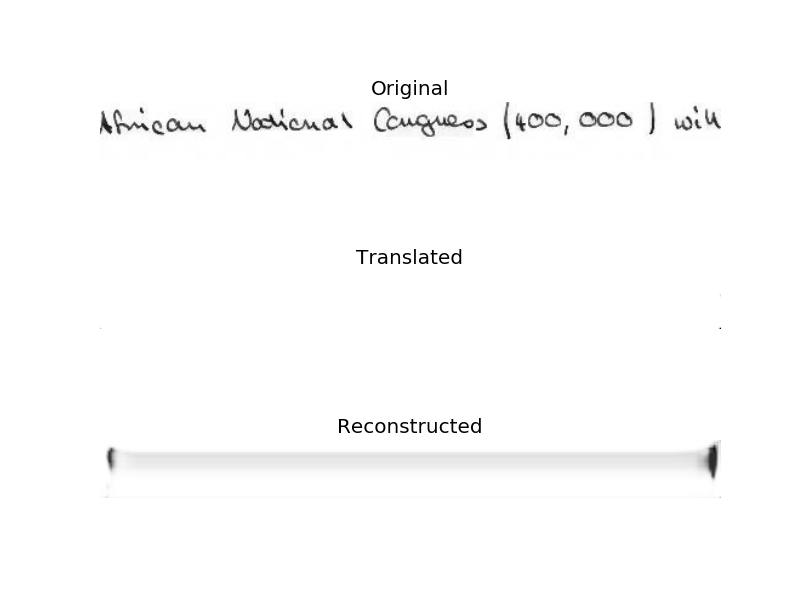 Original
African National Congress (400,000) will
Translated
Reconstructed